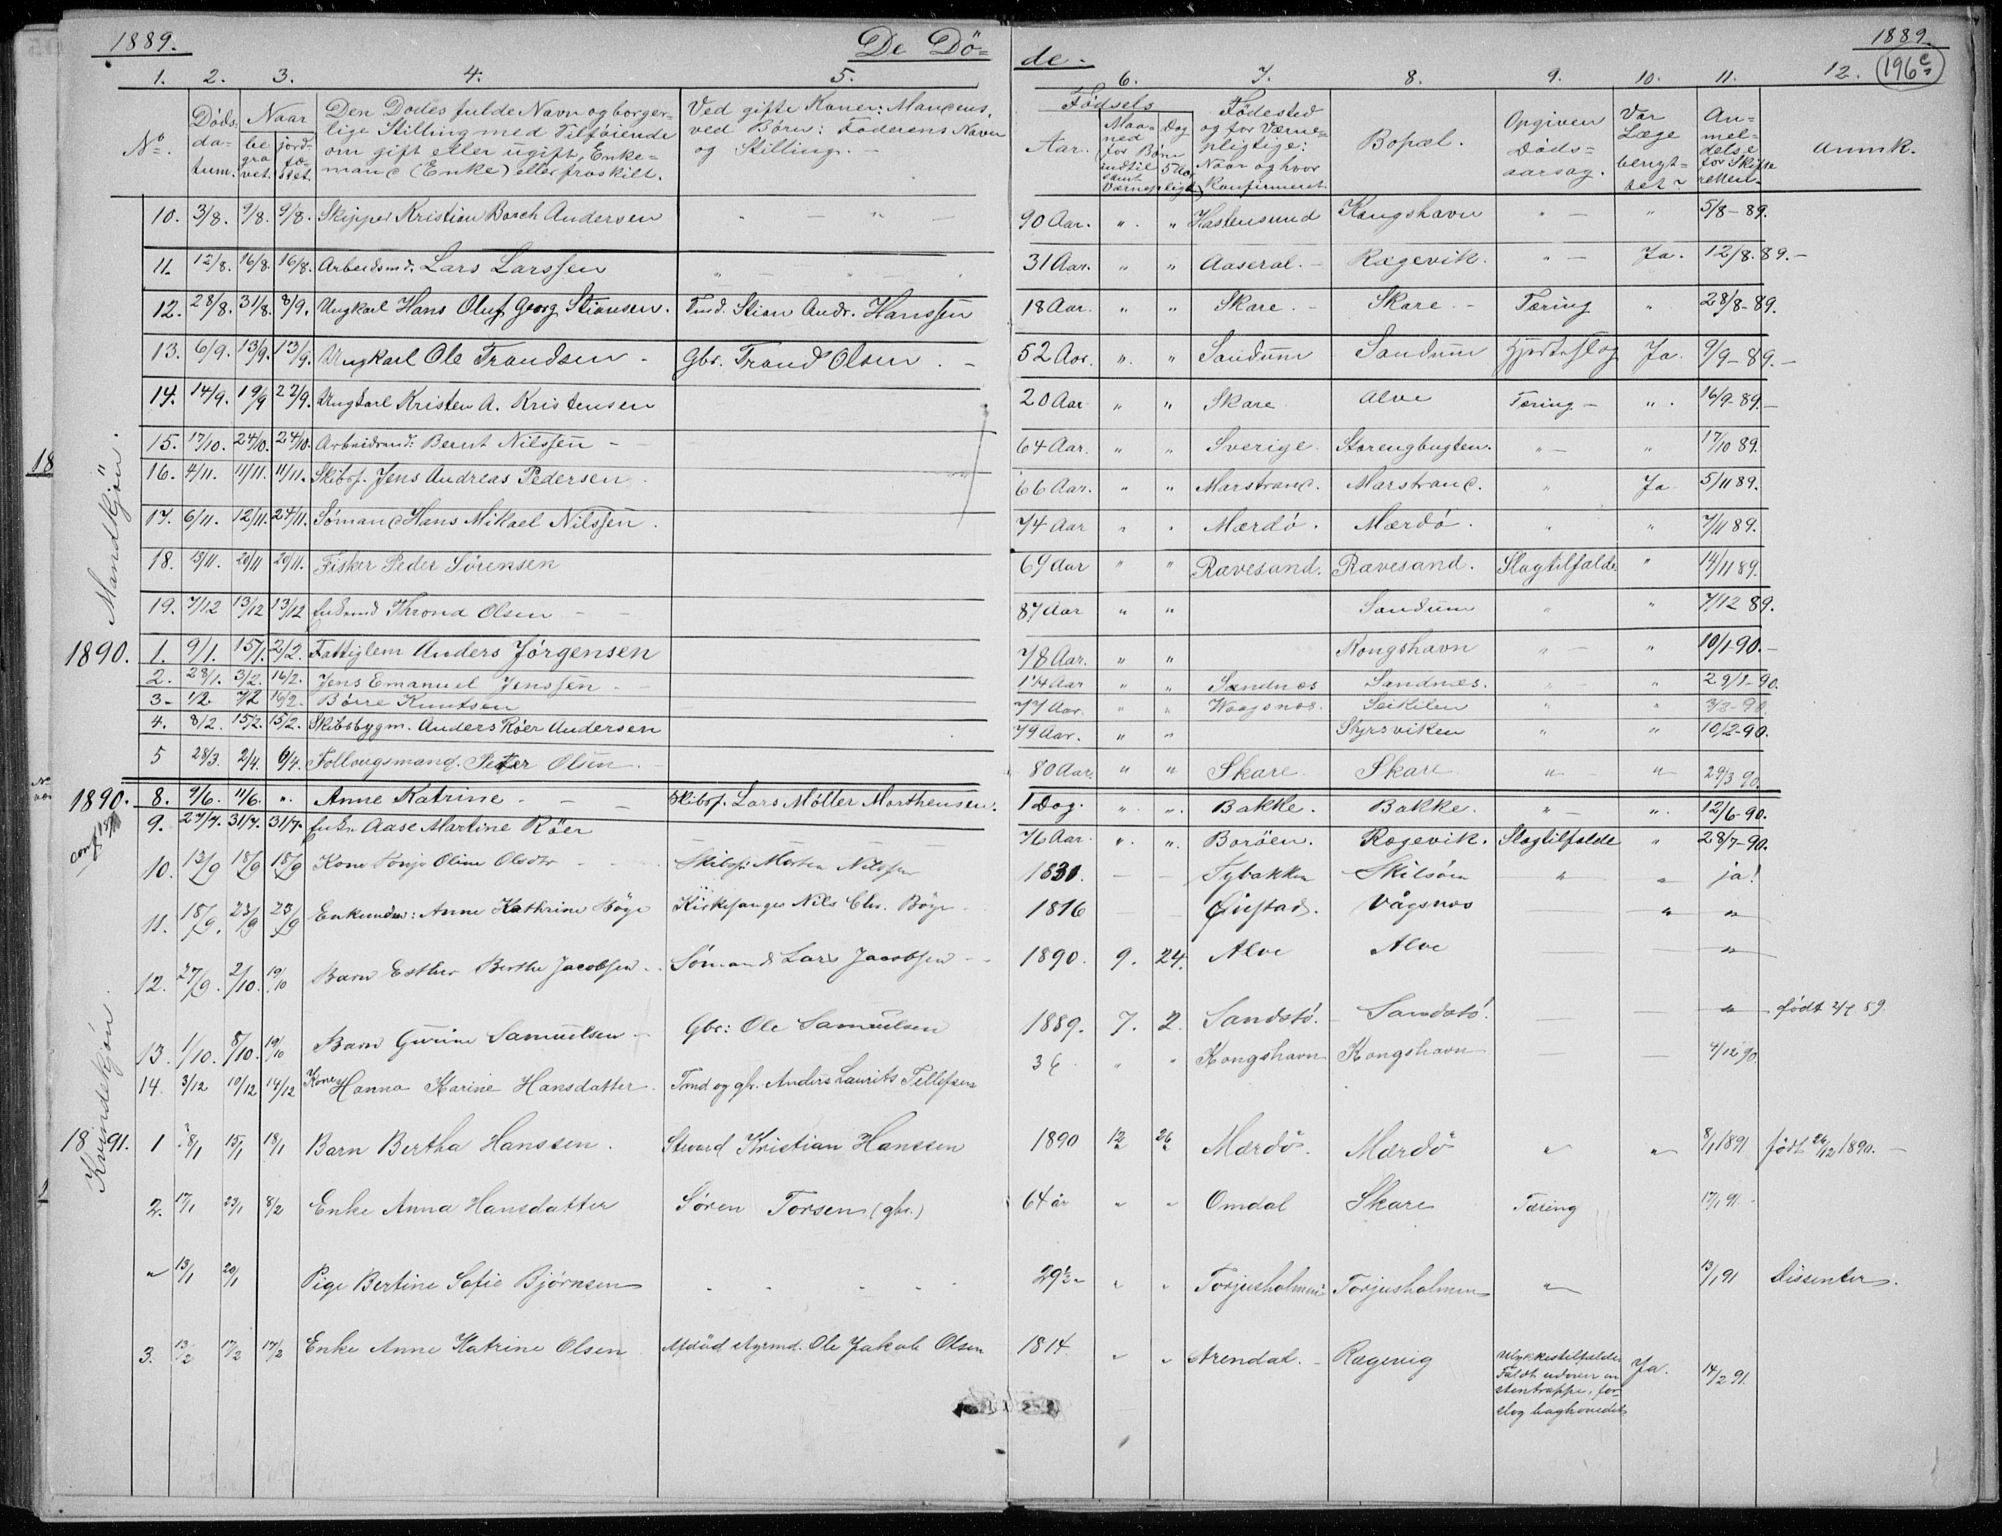 1889. De Dö=
de.- 1889.
196c
1. 2. 3. 4. 5. 6. 7. 8. 9. 10. 11. 12.
No. Døds-da-tum. Naar be gra vet. jord-fæ-stet. Den Dødes fulde Navn og borger-lige Stilling med Tilføiende om gift eller ugift, Enke-mand (Enke) eller fraskilt. Ved gifte Koner: Mandens, ved Børn: Faderens Navn og Stilling.-
Fødsels Aar. Maa-ned for Børn indtil samt Værnepligt. Dag 5 Aar Fødested og for Værne-pligtige: Naar og hvor Konfirmeret. Bopæl. Opgiven Døds-aarsag. Var Læge benyt-tet? An-mel-delse for Skifte retten. Anmk.
Mandkjön.
10. 3/8. 9/8. 9/8. Skipper Kristian Bosch Andersen " - " - 90 Aar. " " Hastensund Kongshavn " - " 5/8-89.
11. 12/8. 16/8. 16/8. Arbeidsmd. Lars Larssen " - " - 31 Aar. " " Aaseral.- Rægevik. " - Ja. 12/8.89.-
12. 28/8. 31/8. 8/9. Ungkarl Hans Oluf Georg Stiansen. Tmd. Stian Andr. Hanssen 18 Aar. " " Skare.- Skare.- Tæring " 28/8-89.
13. 6/9. 13/9. 13/9. Ungkarl Ole Trondsen - Gbr. Trond Olsen.- 52 Aar. " " Sandum Sandum Hjerteslag Ja. 9/9-89.-
14. 14/9. 19/9 22/9. Ungkarl Kristen A. Kristensen 20 Aar " " Skare Alve Tæring - ". 16/9-89.-
15. 17/10. 24/10. 24/10. Arbeidsmd: Bernt Nilssen - - 64 Aar. " " Sverige. Storengbugten. " - " 17/10 89.
16. 4/11. 11/11. 11/11. Skibsf. Jens Andreas Pedersen. 66 Aar. " " Marstrand. Marstrand. " Ja 5/11 89.
17. 6/11. 12/11. 24/11. Sømand Hans Mikael Nilssen. 74 Aar " " Mærdö. Mærdö. " " 7/11 89.
18. 13/11. 20/11 20/11. Fisker Peder Sørensen 69 Aar " " Rævesand. Rævesand. Slagtilfælde " 14/11 89.
19. 7/12 13/12 13/12 Enkemd Thrond Olsen - - 87 Aar " " Sandum " " 7/12 89.
1890. 1. 9/1. 15/1. 2/2. Fattiglem Anders Jörgensen 78 Aar. " " Kongshavn " - " 10/1-90.-
2. 28/1. 3/2. 16/2. Jens Emanuel Jenssen. - 1 1/4 Aar " " Sandnæs Sandnæs. " - " 29/1-90.
3- 1/2 7/2 16/2. Børre Knutsen 77 Aar. " " Waagsnes. Seikilen " " 3/2-90
4. 8/2. 15/2. 15/2. Skibsbygm. Anders Röer Andersen 79 Aar. " " Styrsviken " " 10/2-90.
5 28/3. 2/4. 6/4. Follaugsmand. Peter Olsen.- 80 Aar. " " Skare Skare " - " 29/3 90.
1890. 8. 9/6. 11/6. ". Anne Katrine - - Skibsf. Lars Møller Morthensen. 1 Dag. " ". Bakke. Bakke. " - ". 12/6-90.
Kvindekjön.
9. 27/7. 31/7. 31/7. Enke Aase Martine Röer 76 Aar. ". ". Boröen. Rægevik. Slagtilfælde " 28/7-90.
10. 13/9 18/9 18/9 Kone Oline Olsdtr - - Skibsf: Morten Nilssen 1831. - - Tybakken Skilsöen " " ja!
11. 18/9. 23/9 23/9 Anne Kathrine Böge Kirkesanger Nils Chr. Böge 1816 - - Vågsnes - " "
12. 27/9. 2/10. 19/10 Barn Esther Berthe Jacobsen.. Sömand Lars Jacobsen - - 1890. 9. 24. Alve Alve - - "
13. 1/10. 8/10. 19/10 Barn Gurine Samuelsen - Gbr: Ole Samuelsen 1889. 7. 2. Sandstö. Sandstö. - - " født 2/7 89.
14. 3/12 10/12 14/12 Kone Hanna Karine Hansdatter. Tmd og gb. Anders Laurits Tellefsen 36 " " Kongshavn Kongshavn - - 4/12 90
1891. 1 8/1 15/1 18/1 Barn Bertha Hanssen. Steward Kristian Hanssen 1890 12 26 Mærdö. Mærdö " " 8/1 1891 født 26/12 1890.-
2. 17/1 23/1 8/2 Enke Anna Hansdatter Søren Torsen (gbr.) 64 år " " Omdal Skare Tæring 17/1 91.
" 13/1 20/1 Pige Bertine Sofie Bjørnsen " " " " 29 1/2 " " Torjusholmen Torjusholmen " 13/1 91 Dissenter.
3. 13/2 17/2 17/2 Enke Anne Katrine Olsen Afdöd styrmd. Ole Jakob Olsen 1814. " " Arendal.- Rægevig Ulykkestilfælde Faldt udover en stentrappe, for-slog baghovedet Ja. 14/2 91.